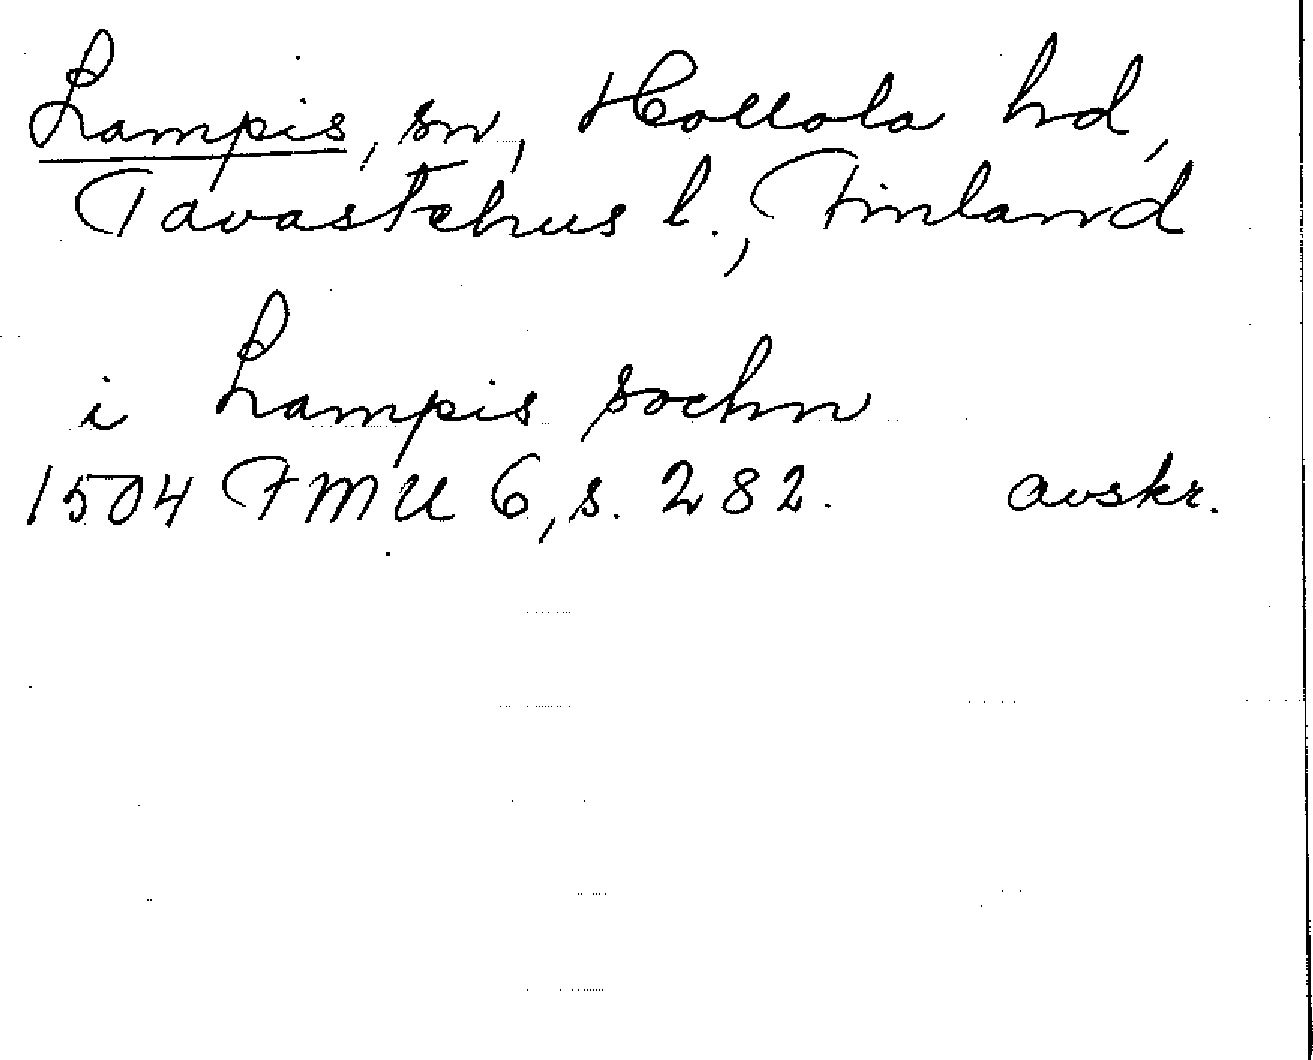 Lampis, sn, Hollola hd,
Tavastehus l., Finland
i Lampis sochn
1504 FMU 6, s. 282. avskr.